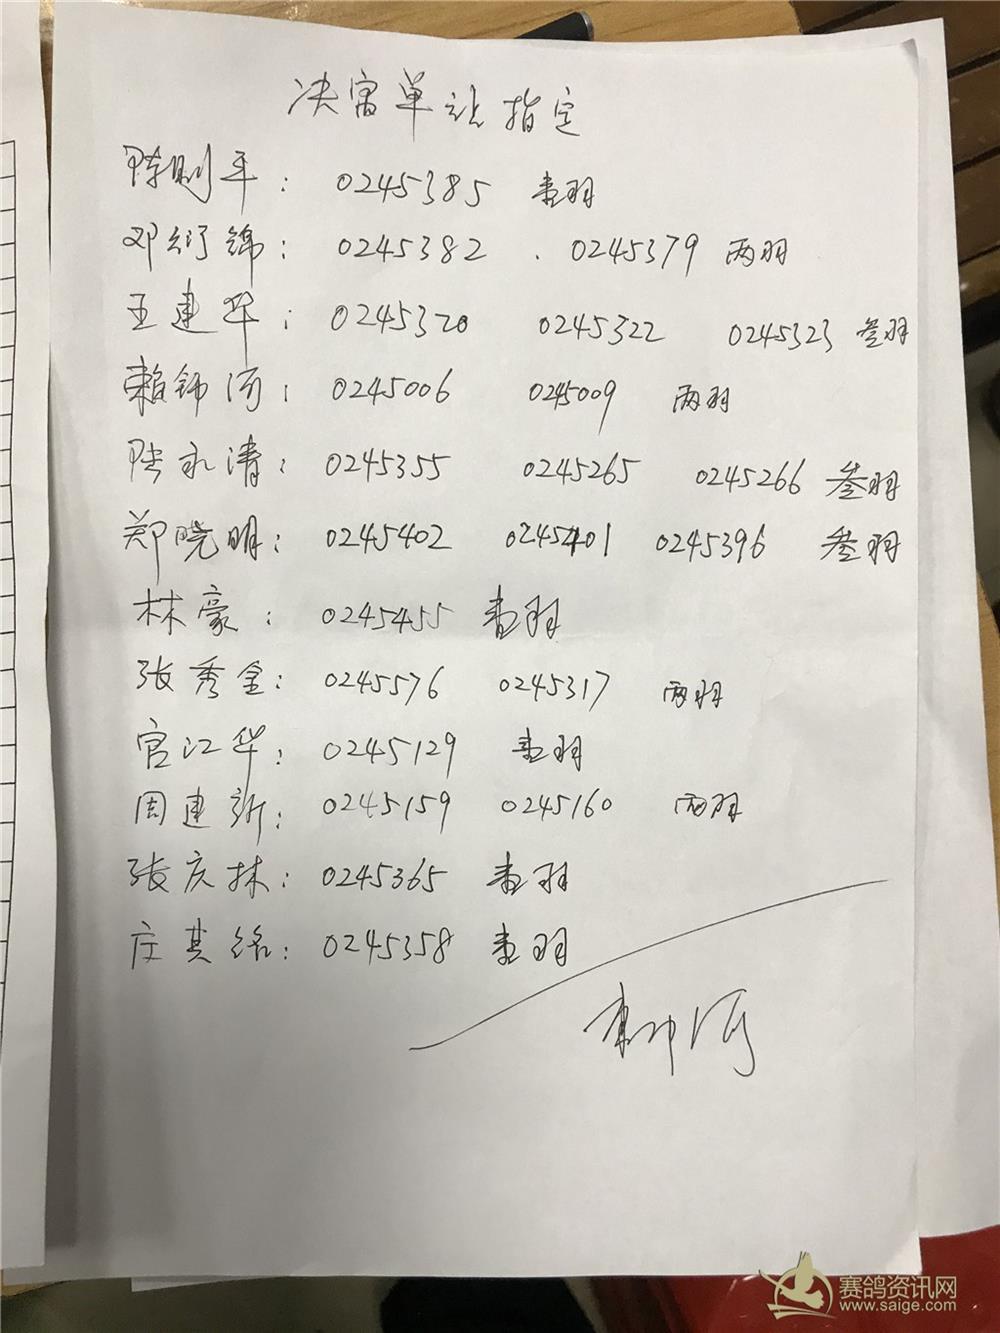 决赛单站指定
陈则平： 0245385 壹羽
邓衍锦： 0245382 . 0245379 两羽
王建华： 0245320 0245322 0245323 叁羽
赖钟河： 0245006 0245009 两羽
陈永清： 0245355 0245265 0245266 叁羽
郑晓明： 0245402 0245401 0245396 叁羽
林豪： 0245455 壹羽
张秀金： 0245576 0245317 两羽
官江华： 0245129 壹羽
周建新： 0245159 0245160 两羽
张庆林： 0245365 壹羽
庄其铭： 0245358 壹羽
赛鸽资讯网
www.saige.com